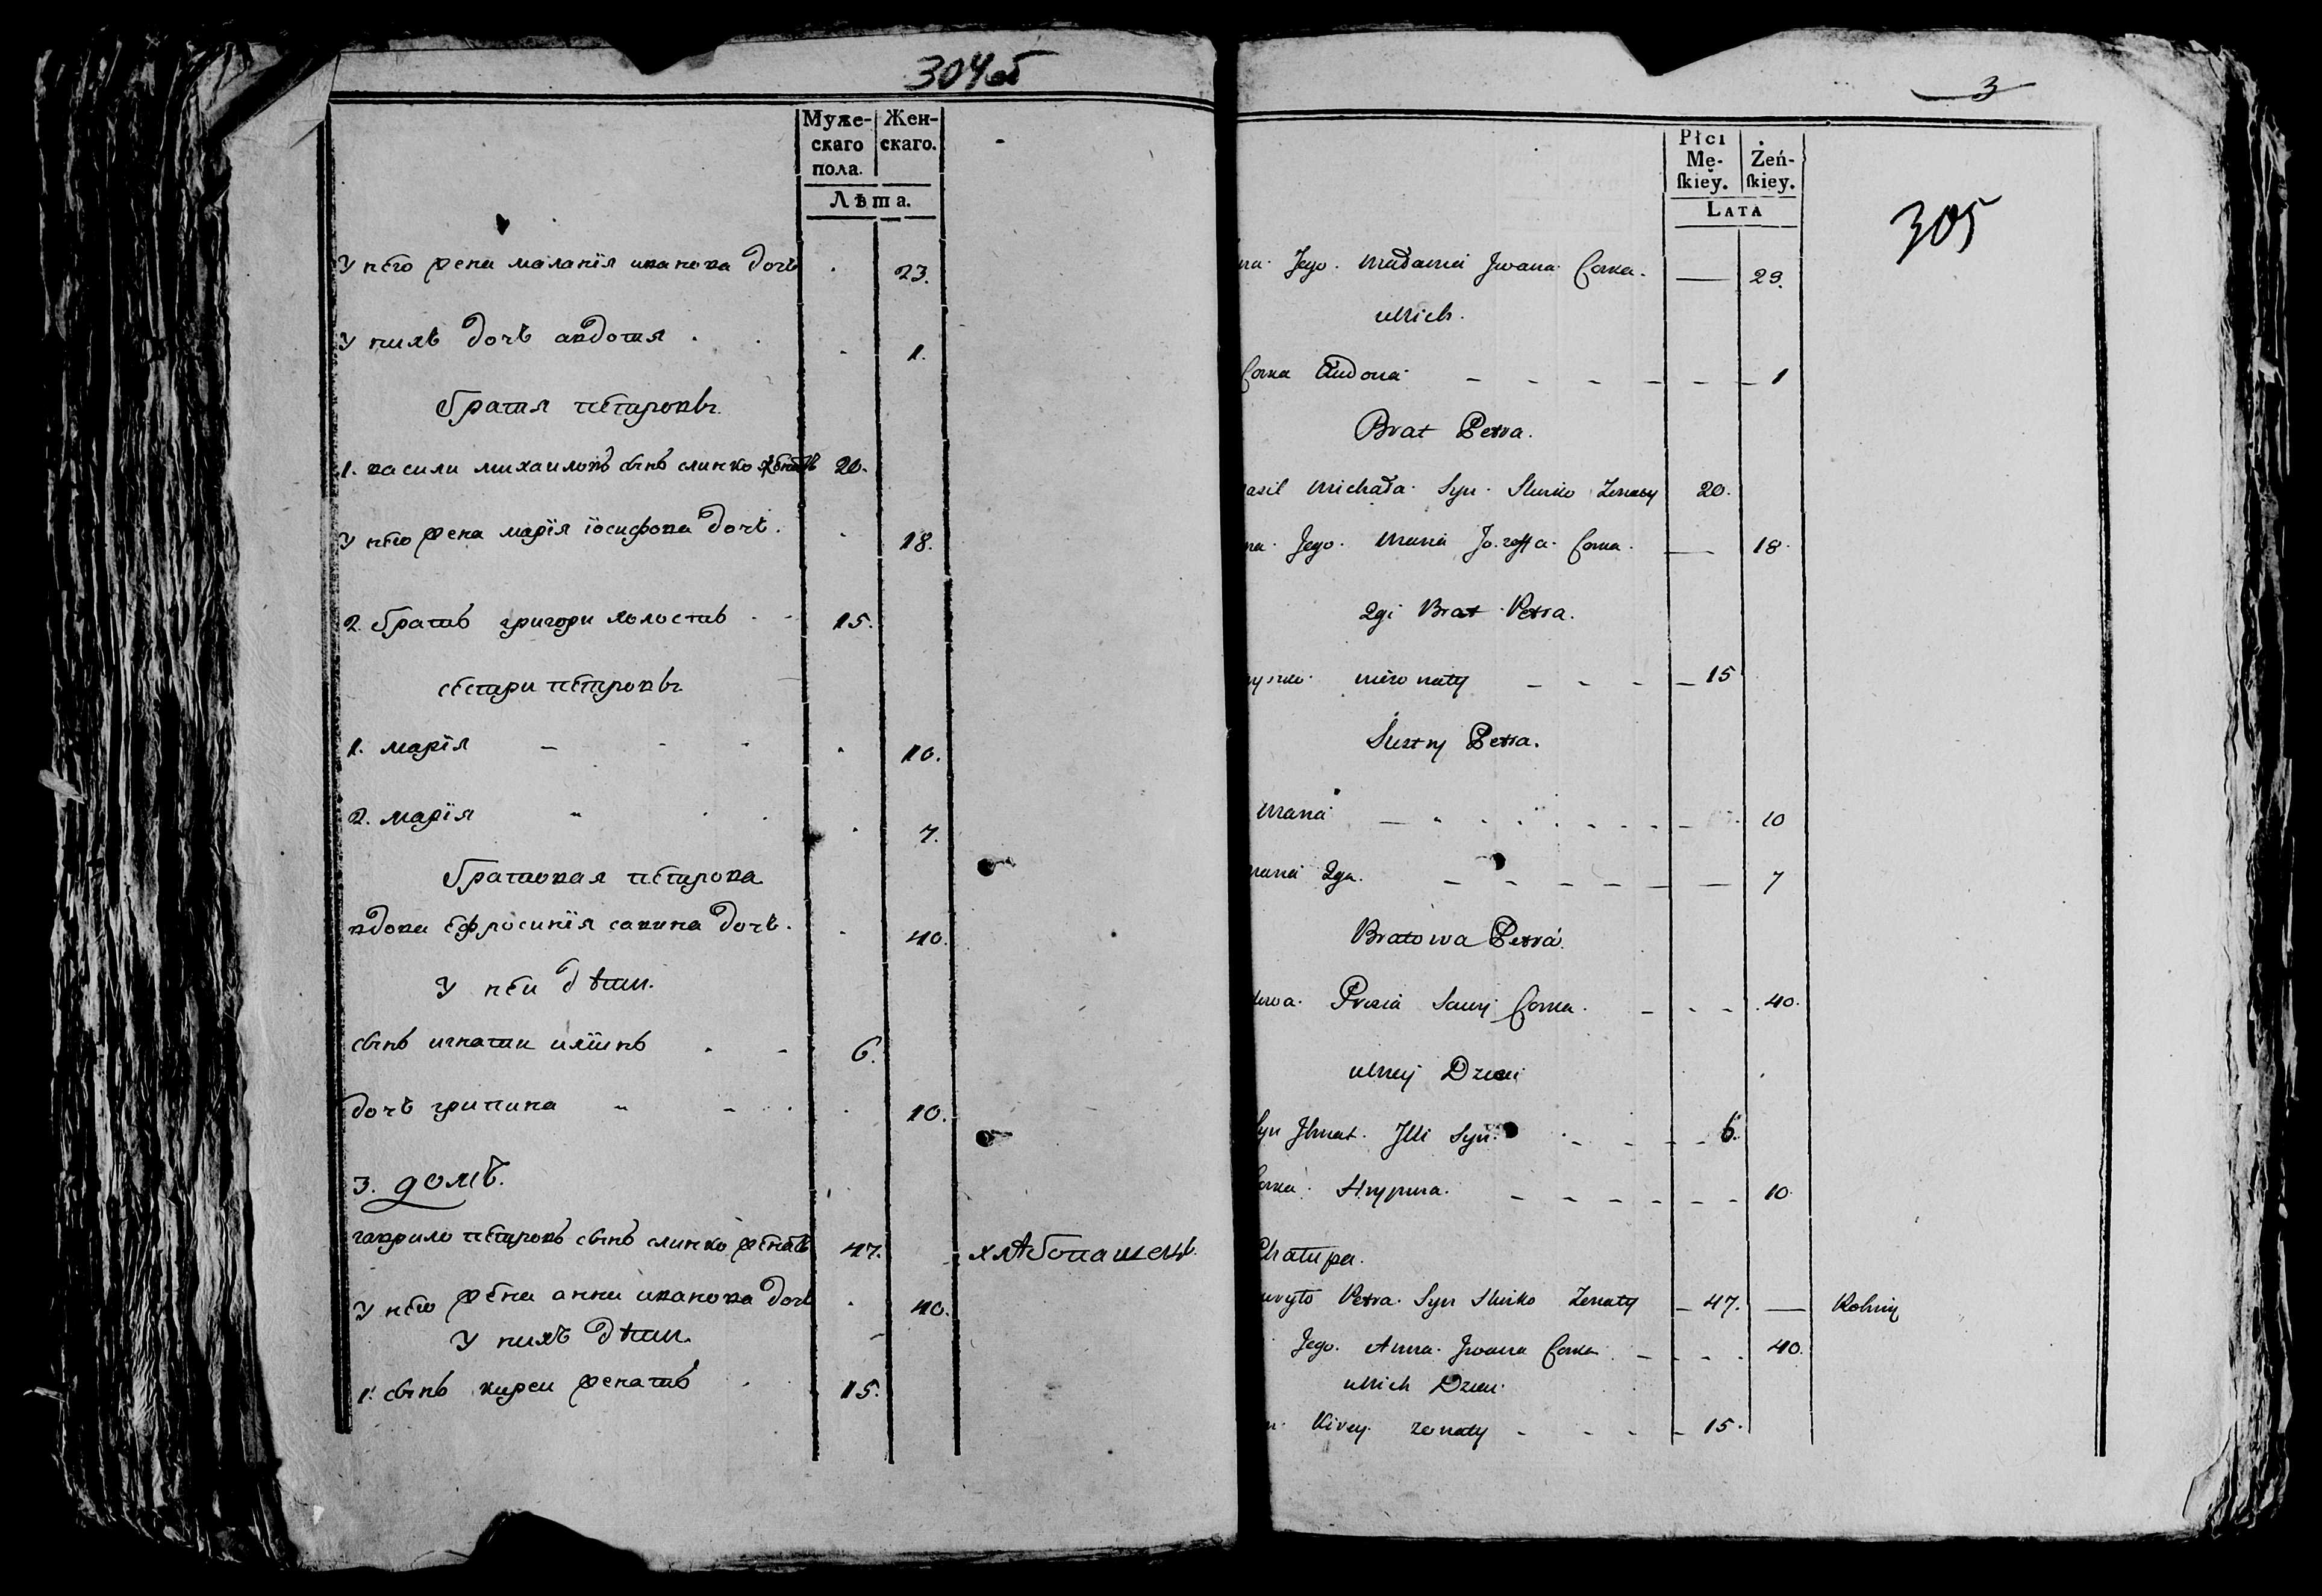 304об
Муже-
скаго
пола.
Жен-
скаго.
Лѣта.
У него жена маланїя иванова дочь 23.
У нихъ дочь авдотия 1.
братия петровы
1. васили михаиловъ сынъ слинко женатъ 20.
У него жена марїя їосифова дочь. 18.
2. братъ григори холостъ 15.
сестри петровы
1. марїя 10.
2. марїя 7.
братовая петрова
вдова ефросинїя савина дочь. 40.
У неи дѣти.
сынъ игнати 6.
дочь грипина 10.
3. домъ.
гаврило петровъ сынъ слинко женатъ 47. хлѣбопашецъ
У него жена анна иванова дочь 40.
У нихъ дѣти.
1. сынъ киреи женатъ 15.
3
305
Płci
Mę-
ſkiey.
Żeń-
ſkiey.
LATA
Jego. Iwana Corka. — 23.
uNich.
Corka 1
Brat Petra.
Michała Syn Slinko Zonaty 20.
Jego. Maria Jozeffa Corka. — 18.
2gi Brat Petra.
niezonaty 15
Siostry Petra.
Maria 10
2ga. 7
Bratowa Petra.
Prisia Sawy Corka. 40.
uNiey Dzieci
Syn Ihnat. Illi Syn. 6.
Corka Hrypina. 10
Chatupa.
Petra Syn Slinko Zonaty 47. — Rolniy
Jego. Anna Iwana Corka 40.
uNich Dzieci.
Kirey zonaty 15.